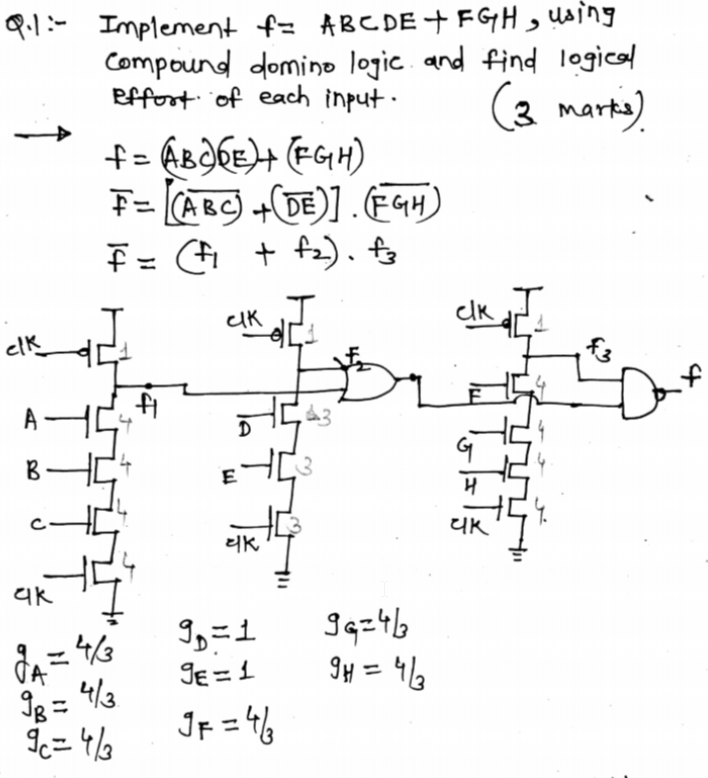 Q.1:- Implement f= ABCDE+FGH, using
Compound domino logic and find logical
Effort of each input. (3 marks)
→ f = (ABC)(DE)+(FGH)
f̅ = [(A̅B̅C̅) + (D̅E̅)] . (F̅G̅H̅)
f̅ = (f1 + f2) . f3
clk 1
f1
A 4
B 4
C 4
clk 4
clk 1
F2
D 3
E 3
clk 3
clk 1
f3
f
F 4
G 4
H 4
clk 4
gA = 4/3
gB = 4/3
gC = 4/3
gD = 1
gE = 1
gF = 4/3
gG = 4/3
gH = 4/3